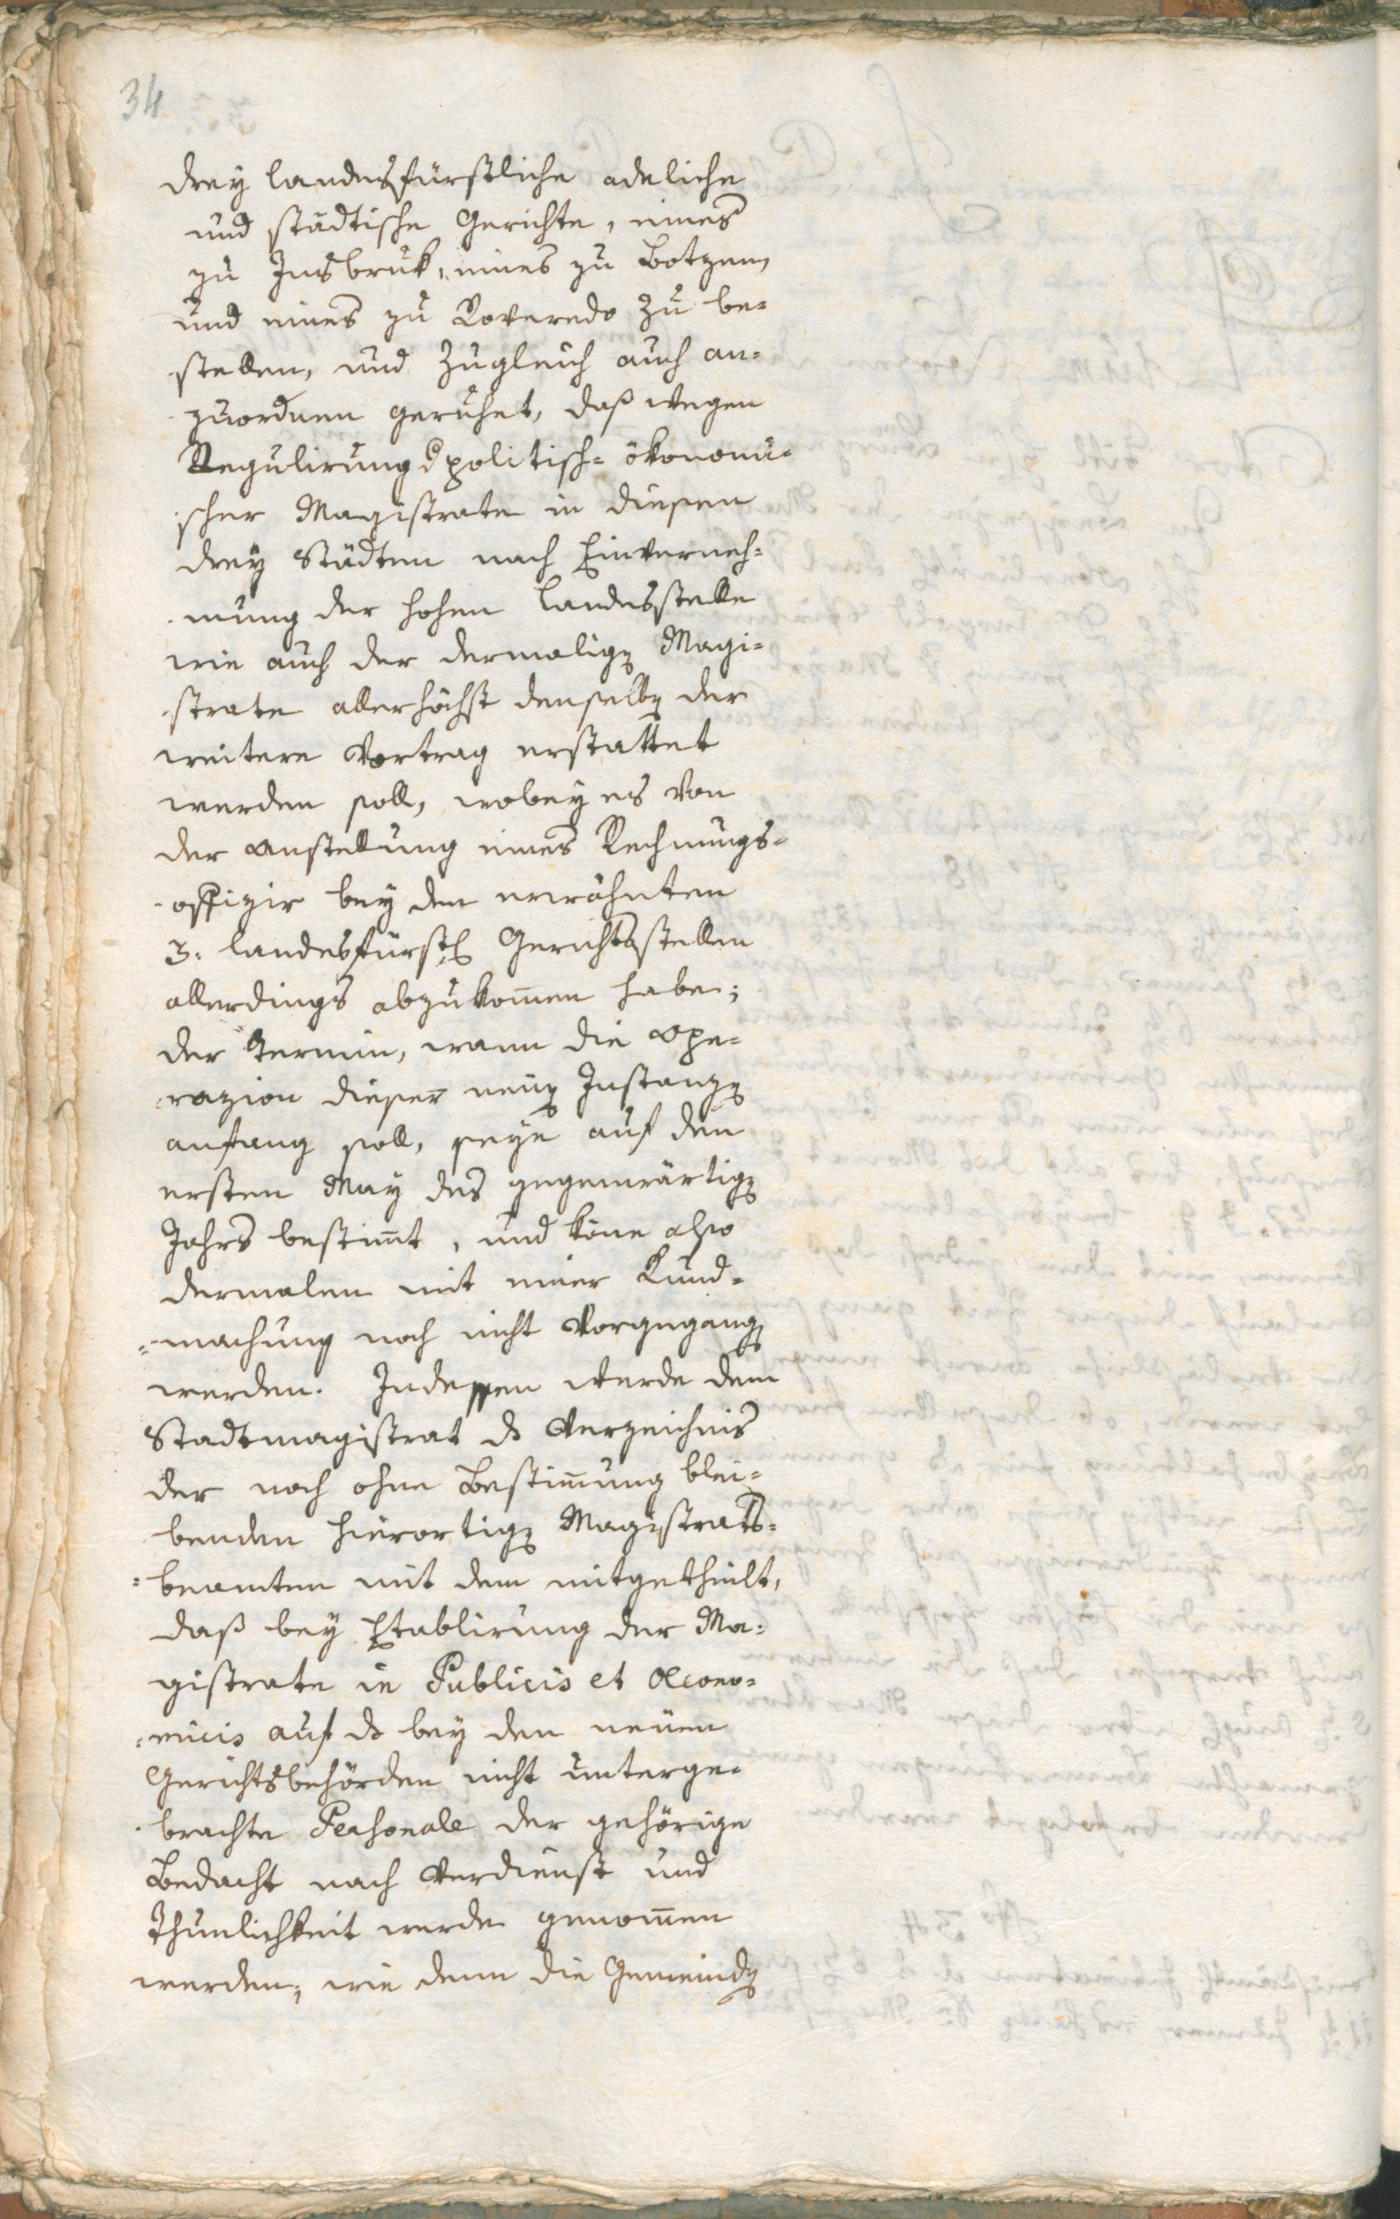 34
drey landesfürstliche adeliche
und städtische Gerichte, eines
zu Insbruk, eines zu Botzen,
und eines zu Roveredo zu be-
stellen, und zugleich auch an-
zuordnen geruhet, daß wegen
Regulirung d politisch- ökonomi-
scher Magistrate in diesen
drey Städten nach Einverneh-
mung der hohen Landesstelle
wie auch der dermalig Magi-
strate allerhöchst denselb der
weitere Vortrag erstattet
werden soll, wobey es von
der Anstellung eines Rechnungs-
offizir bey den erwähnten
3. landesfürstl Gerichtsstellen
allerdings abzukom̅en habe;
der Termin, wann die Ope-
razion dieser neue Instanz
anfang soll, seye auf den
ersten May des gegenwärtig
Jahrs bestim̅t, und kön̅e also
dermalen mit einer Kund-
=machung noch nicht vorgegang
werden. Indessen werde dem
Stadtmagistrat ds Verzeichnis
der noch ohne Bestim̅ung blei-
benden hierortig Magistrats-
=beamten mit dem mitgetheilt,
daß bey Etablirung der Ma-
gistrate in Publicis et Oecono-
=micis auf ds bey den neuen
Gerichtsbehörden nicht unterge-
brachte Personale der gehörige
Bedacht nach Verdienst und
Thunlichkeit werde genom̅en
werden; wie denn die Gemeind